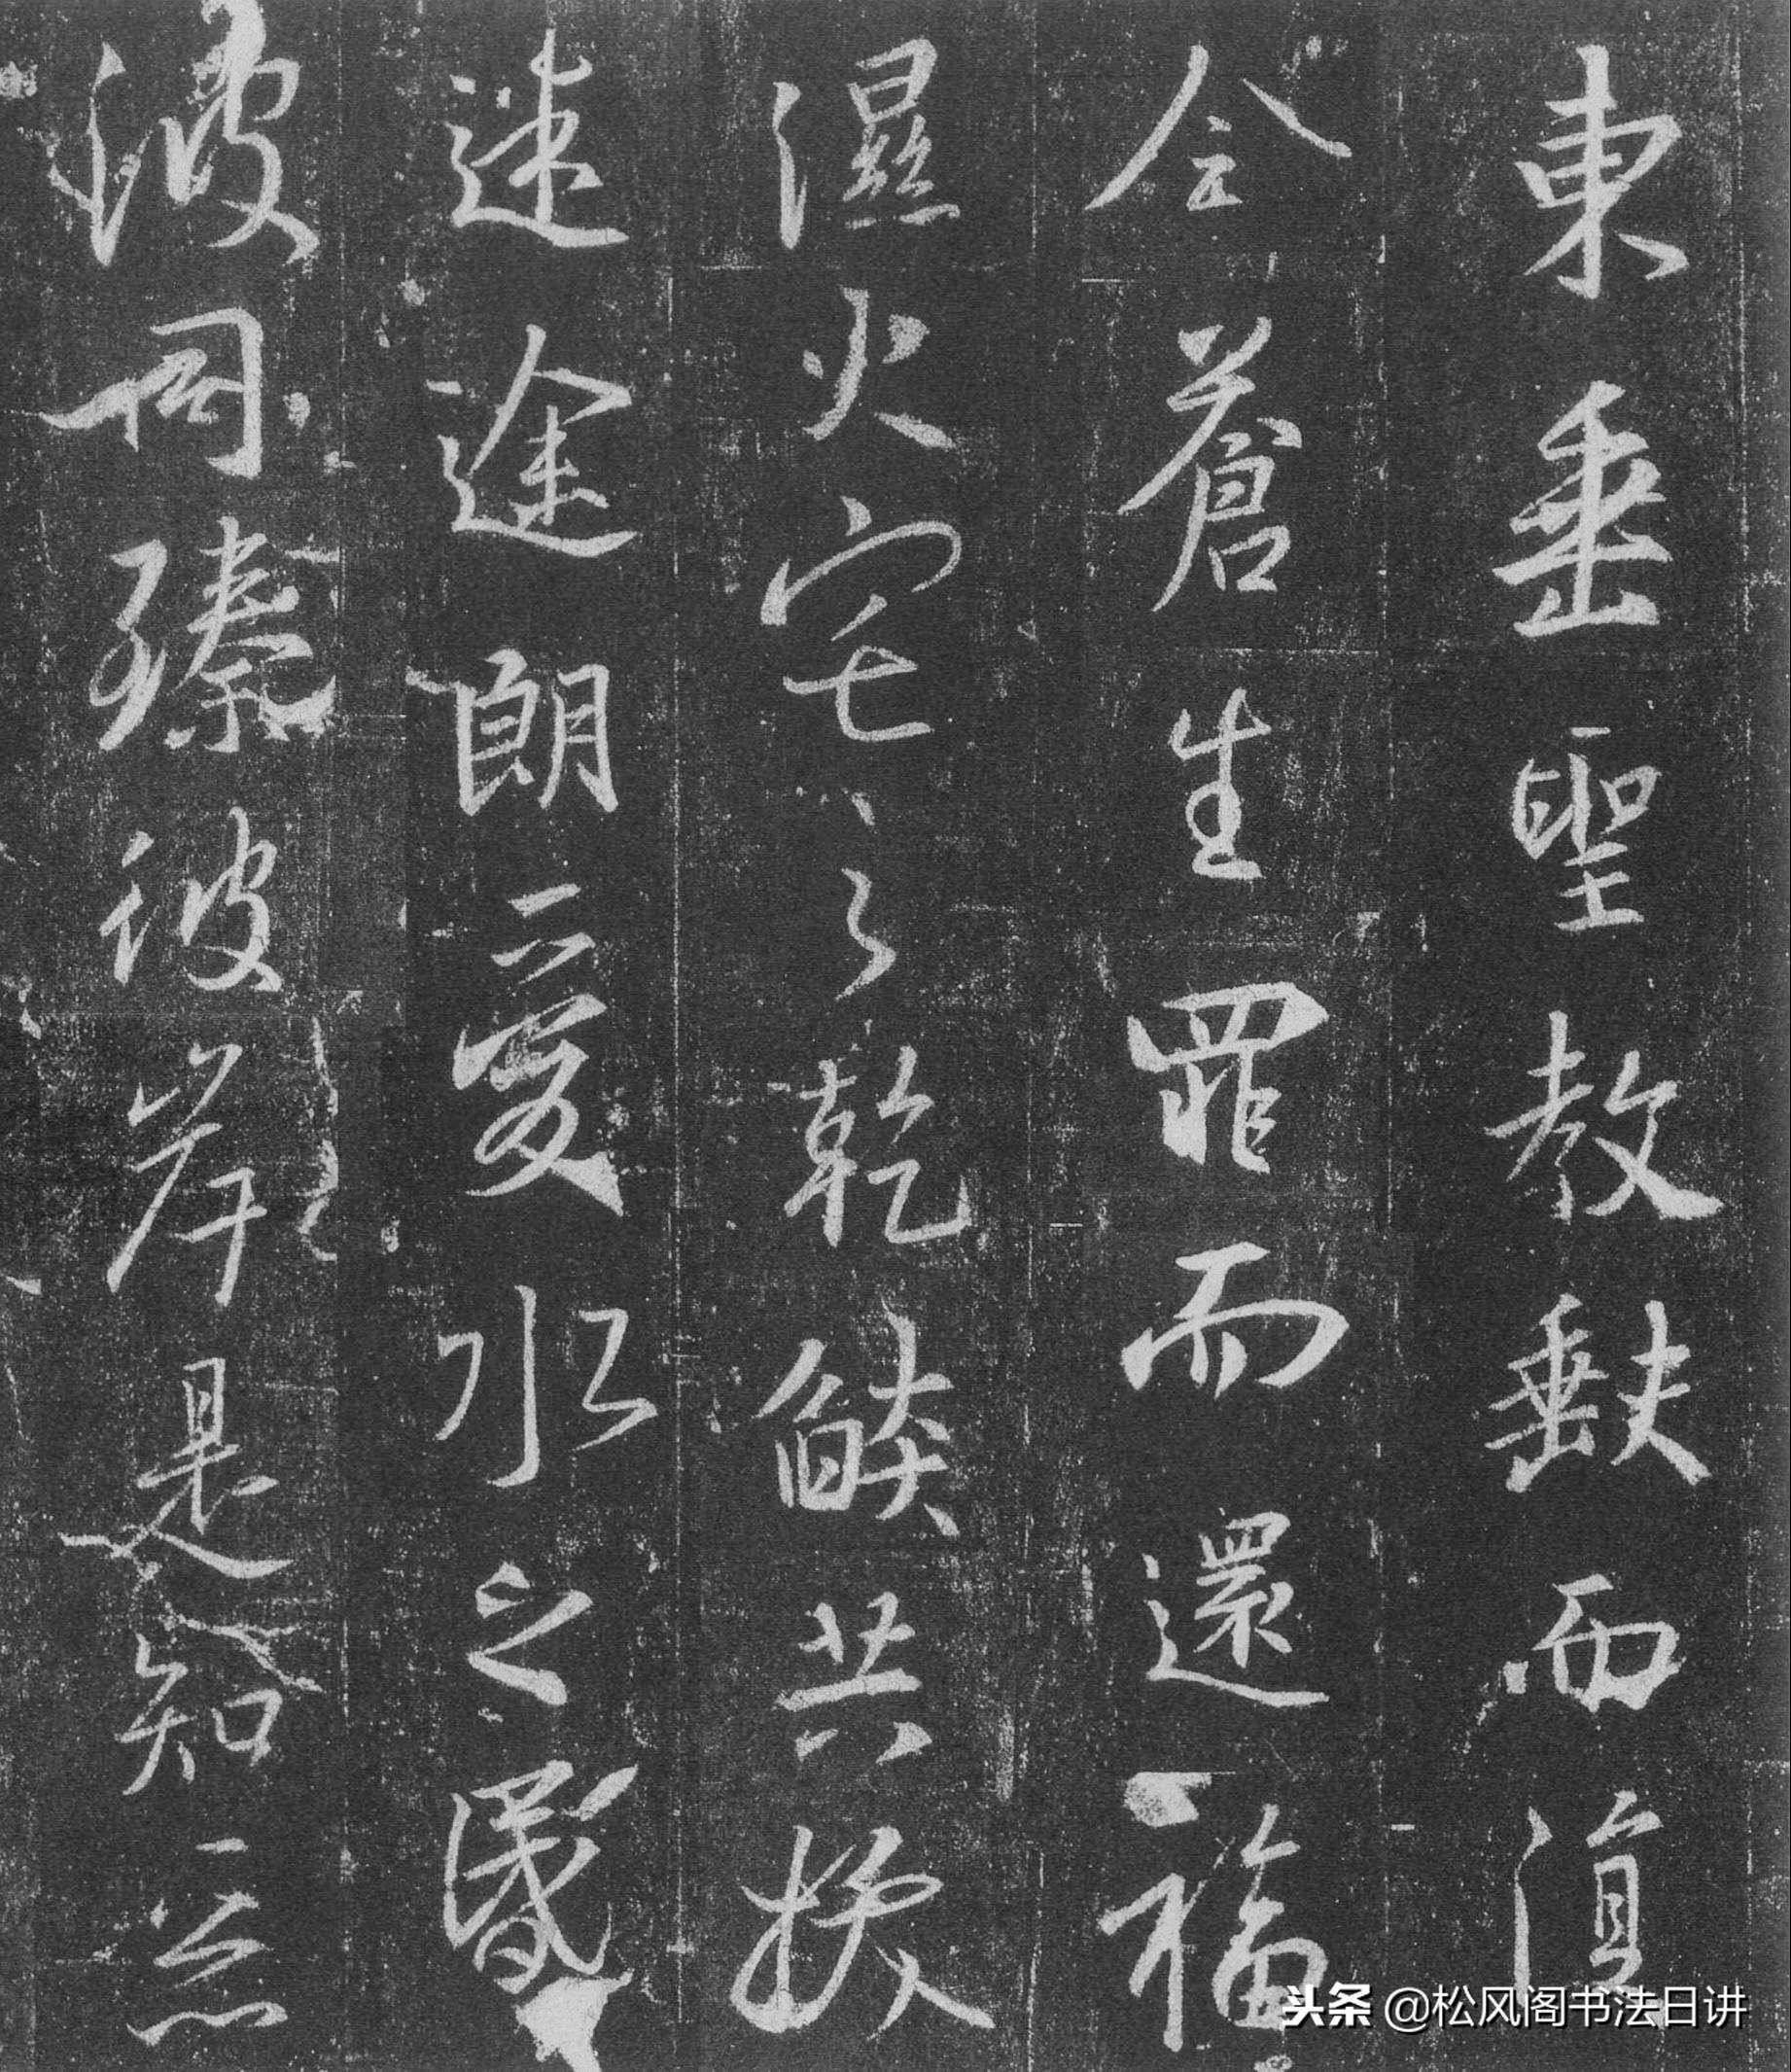 東垂聖教缺而復
全蒼生罪而還福
濕火宅之乾燄共拔
迷途朗愛水之昏
波同臻彼岸是知惡
头条 @松风阁书法日讲